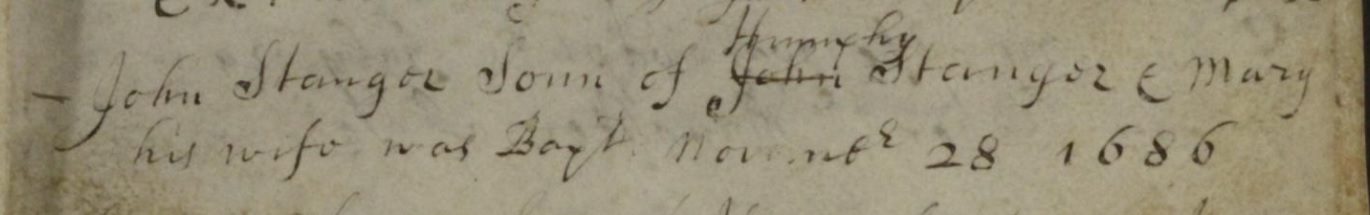 Humphy
John Stanger Sonn of John Stanger & Mary
his wife was Bapt. Novembr 28 1686